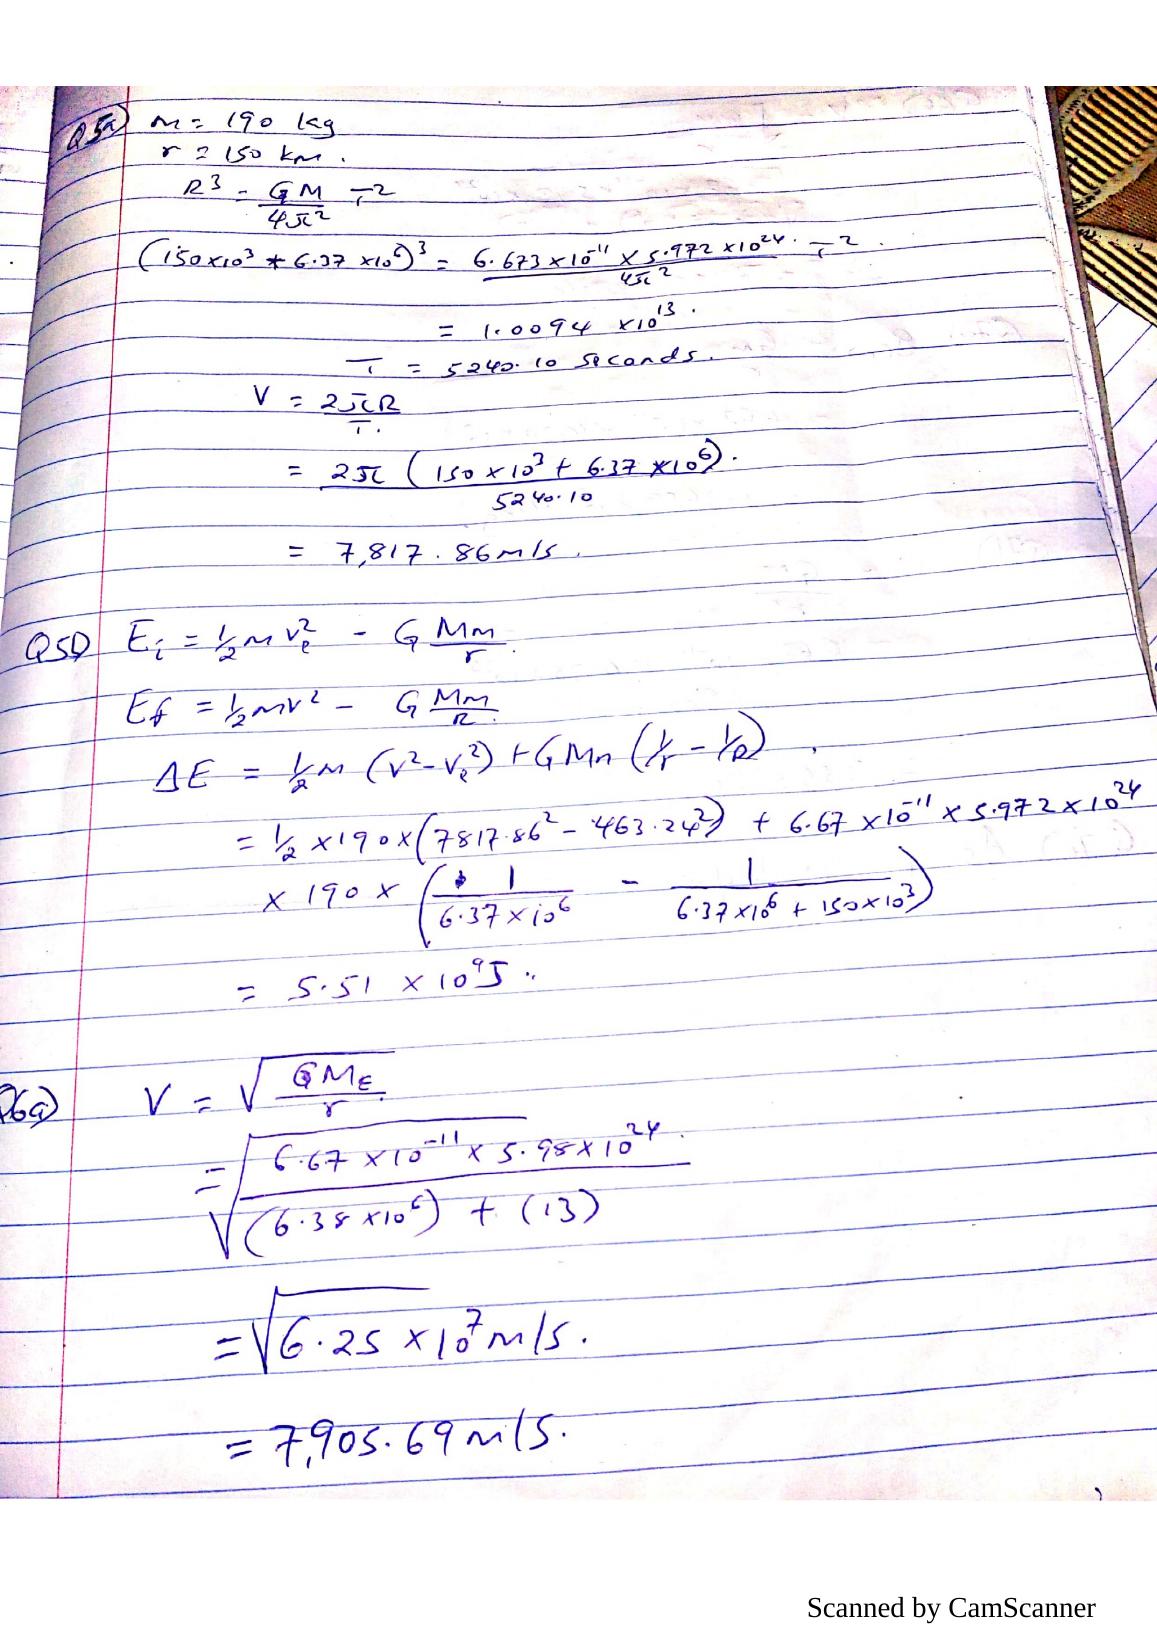 Q5a) m = 190 kg
r = 150 km.
R³ = GM/4π² T²
(150×10³ + 6.37 ×10⁶)³ = 6.673×10⁻¹¹ × 5.972 ×10²⁴/4π² · T²
= 1.0094 ×10¹³.
T = 5240.10 seconds.
V = 2πR/T.
= 2π (150 × 10³ + 6.37 ×10⁶)./5240.10
= 7,817.86 m/s.
Q5b) Ei = ½ m Ve² - G Mm/r.
Ef = ½mv² - G Mm/R.
ΔE = ½m (V² - Ve²) + GMm (1/r - 1/R)
= ½ ×190×(7817.86² - 463.24²) + 6.67 ×10⁻¹¹ × 5.972×10²⁴
× 190 × (1/6.37×10⁶ - 1/6.37×10⁶ + 150×10³)
= 5.51 × 10⁹J.
Q6a) V = √GME/r.
= √6.67 ×10⁻¹¹ × 5.98×10²⁴/(6.38×10⁶) + (13)
= √6.25 ×10⁷ m/s.
= 7,905.69 m/s.
Scanned by CamScanner